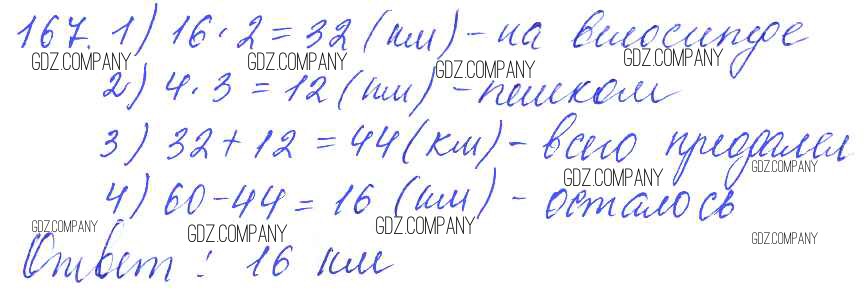 167. 1) 16 · 2 = 32 (км) - на велосипеде
GDZ.COMPANY GDZ.COMPANY GDZ.COMPANY GDZ.COMPANY
2) 4 · 3 = 12 (км) - пешком
3) 32 + 12 = 44 (км) - всего преодолел
GDZ.COMPANY GDZ.COMPANY
4) 60 - 44 = 16 (км) - осталось
GDZ.COMPANY GDZ.COMPANY GDZ.COMPANY GDZ.COMPANY
Ответ: 16 км